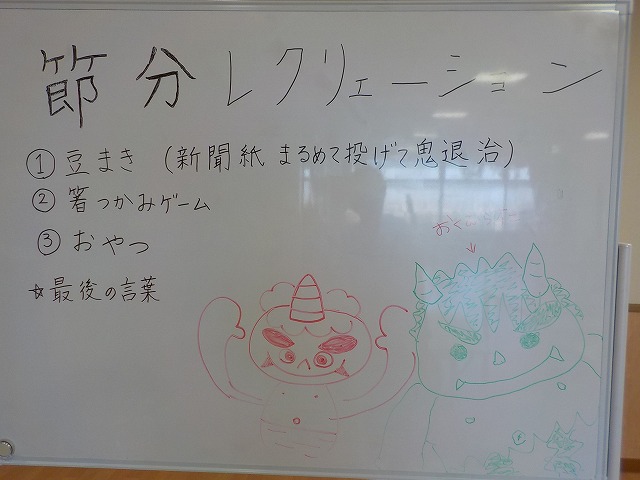 節分レクリェーション
① 豆まき (新聞紙 まるめて投げて鬼退治)
② 箸つかみゲーム
③ おやつ
☆最後の言葉